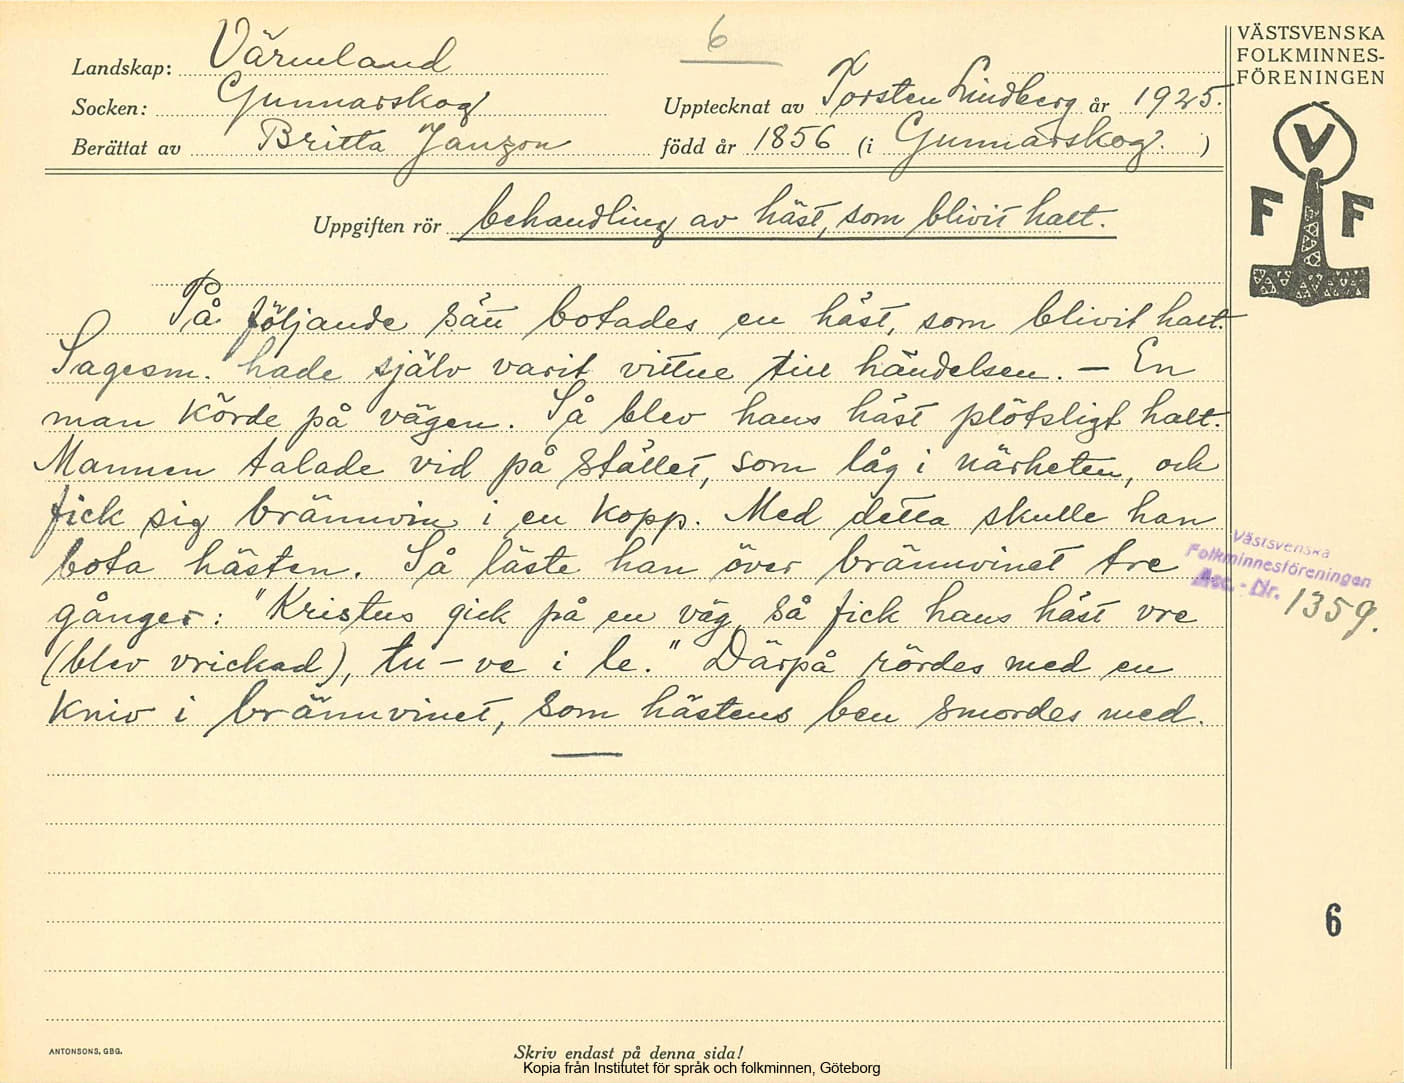 6
VÄSTSVENSKA
FOLKMINNES-
FÖRENINGEN
Landskap: Värmland
Socken: Gunnarskog
Upptecknat av Torsten Lindberg år 1925.
Berättat av Britta Janzon
född år 1856 (i Gunnarskog. )
V
F F
Uppgiften rör behandling av häst, som blivit halt.
På följande sätt botades en häst, som blivit halt.
Sagesm. hade själv varit vittne till händelsen. – En
man körde på vägen. Så blev hans häst plötsligt halt.
Mannen talade vid på stället, som låg i närheten, och
fick sig brännvin i en kopp. Med detta skulle han
bota hästen. Så läste han över brännvinet tre
gånger: "Kristus gick på en väg, så fick hans häst vre
(blev vrickad), tu – ve i le." Därpå rördes med en
kniv i brännvinet, som hästens ben smordes med.
Västsvenska
Folkminnesföreningen
Acc. - Nr. 1359.
6
ANTONSONS, GBG.
Skriv endast på denna sida!
Kopia från Institutet för språk och folkminnen, Göteborg